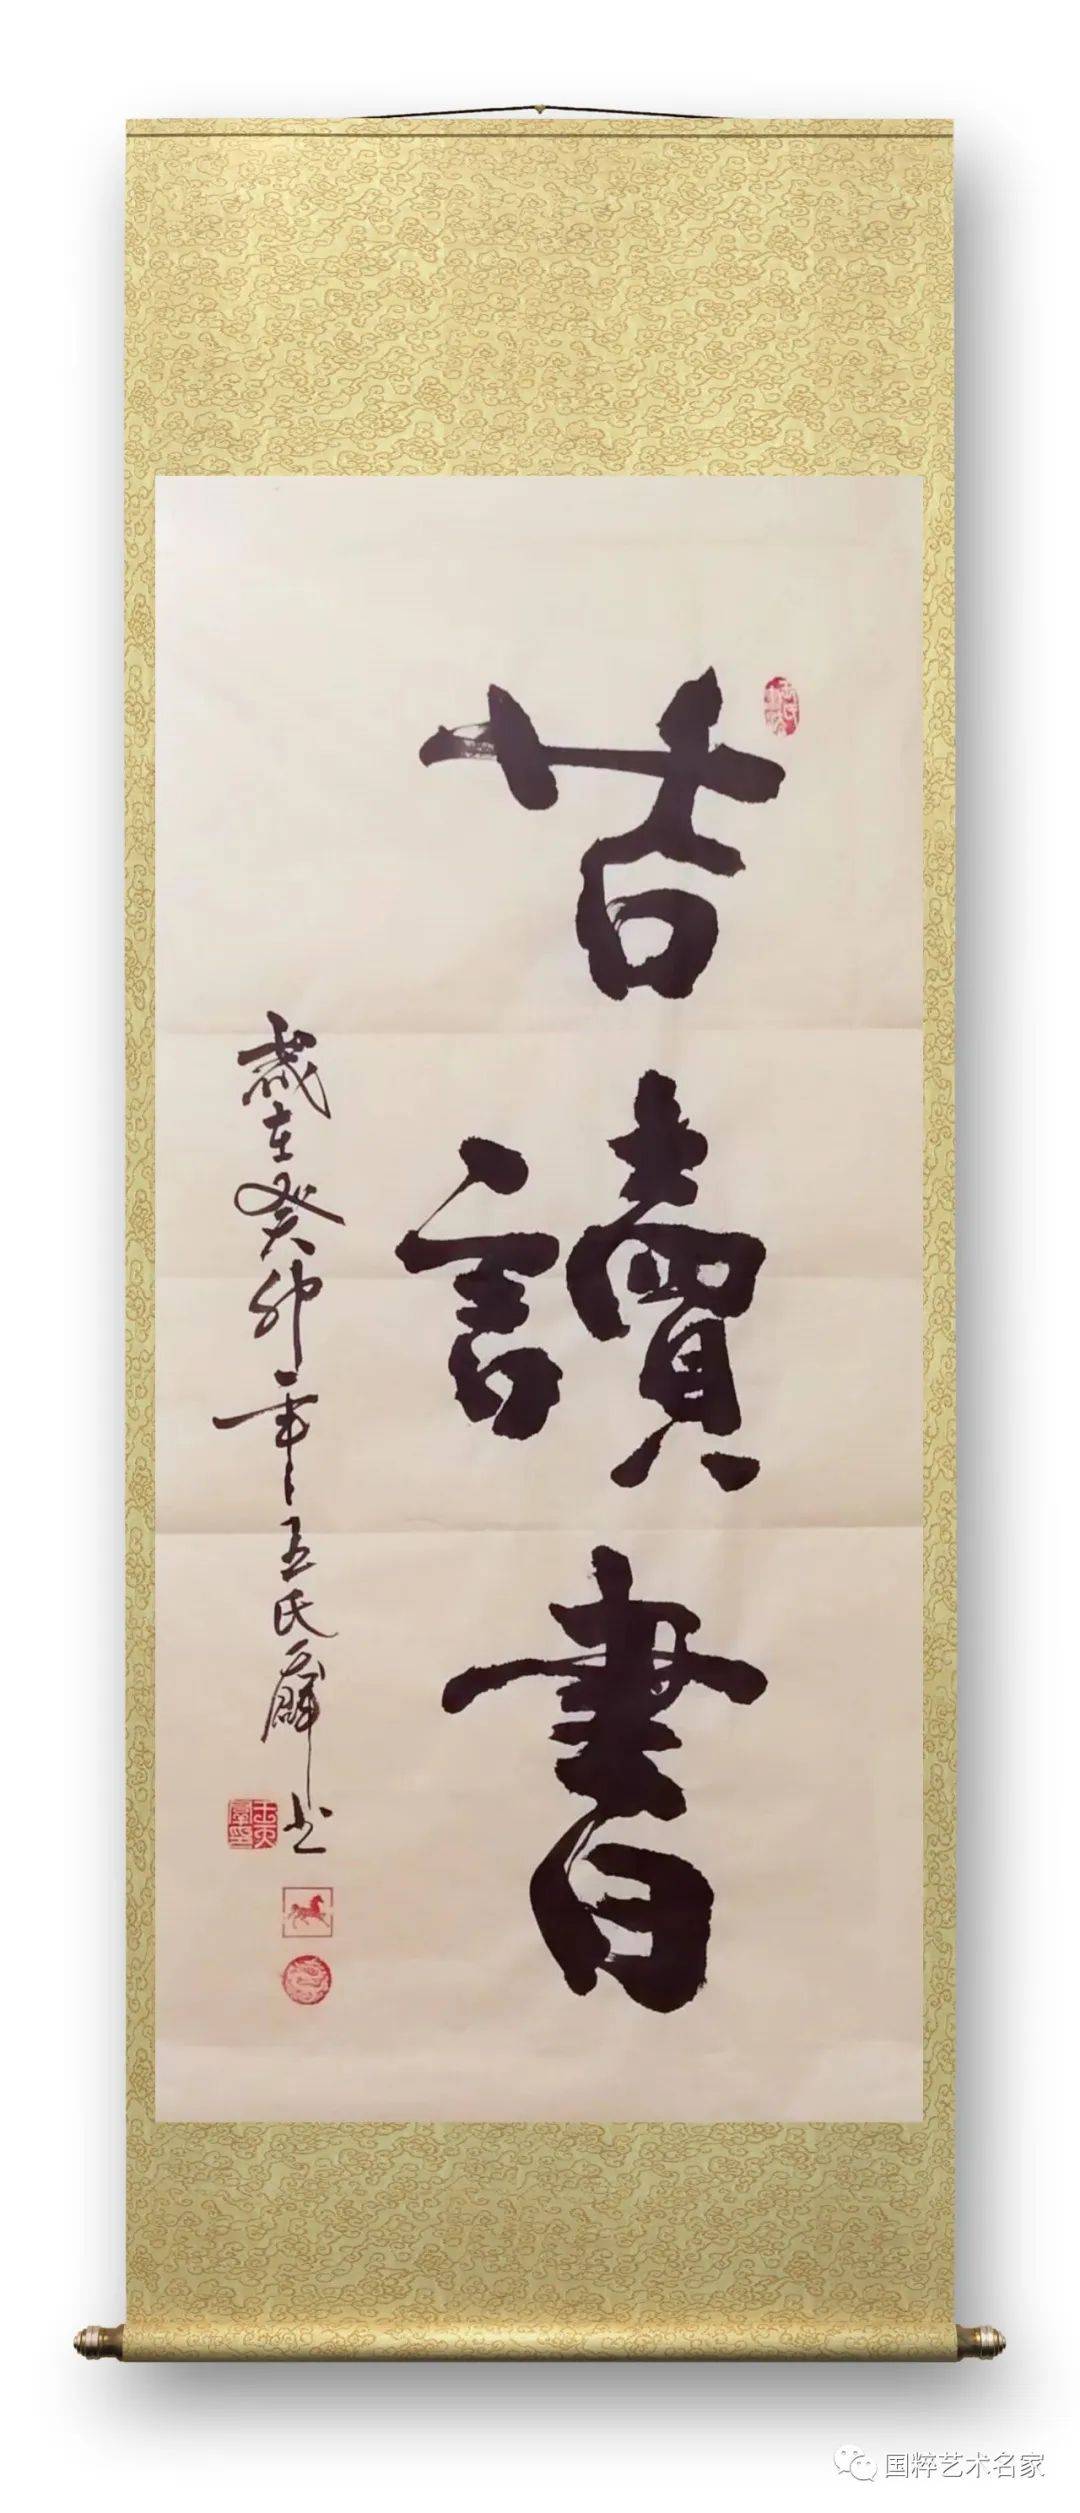 苦讀書
歲在癸卯年王氏薜书
国粹艺术名家